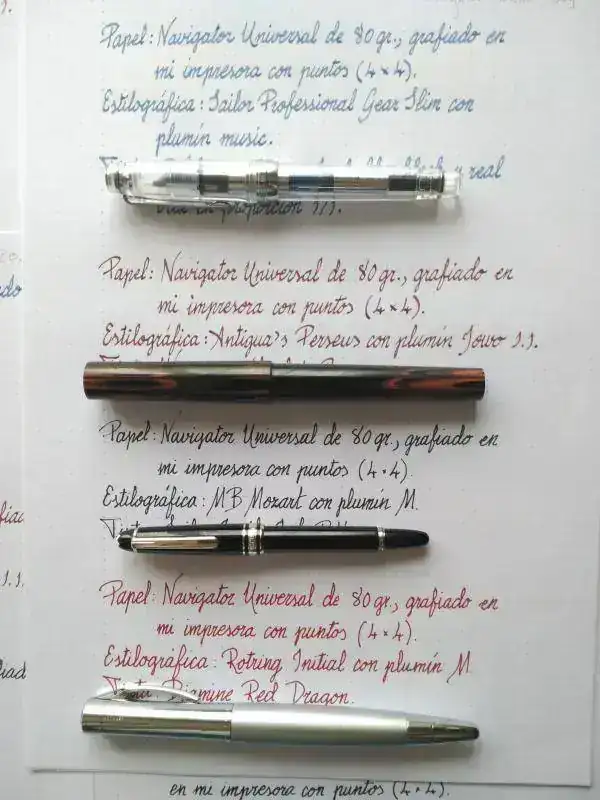 Papel: Navigator Universal de 80 gr., grafiado en
mi impresora con puntos (4×4).
Estilográfica: Sailor Professional Gear Slim con
plumín music.
real
en proporción 1/1.
Papel: Navigator Universal de 80 gr., grafiado en
mi impresora con puntos (4×4).
Estilográfica: Antigua's Perseus con plumín Jowo 1.1.
Papel: Navigator Universal de 80 gr., grafiado en
mi impresora con puntos (4×4).
Estilográfica: MB Mozart con plumín M.
Papel: Navigator Universal de 80 gr., grafiado en
mi impresora con puntos (4×4).
Estilográfica: Rotring Initial con plumín M
Tinta: Diamine Red Dragon.
en mi impresora con puntos (4×4).